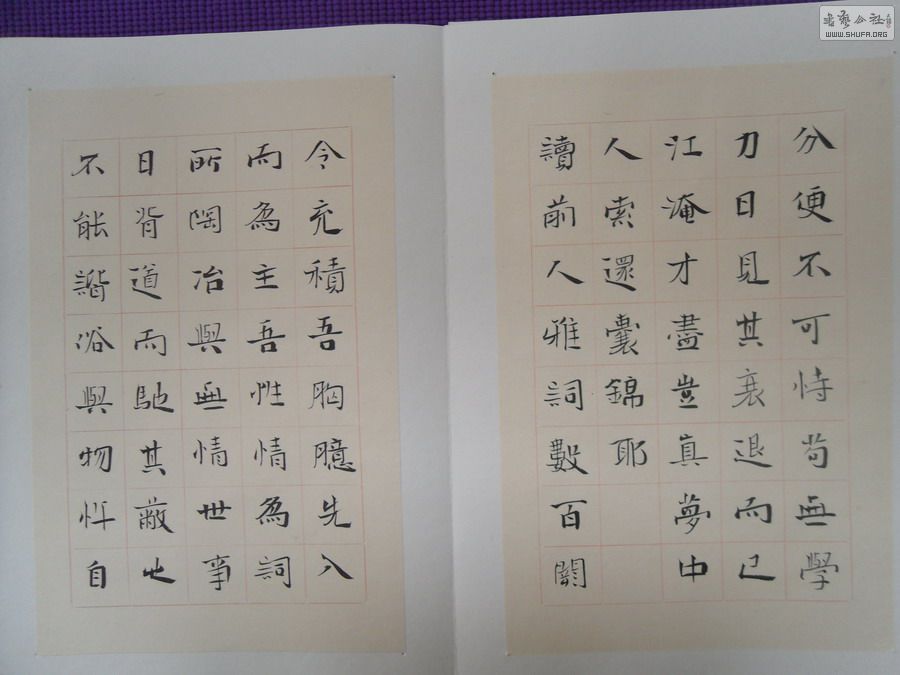 分便不可恃苟無學
力日見其衰退而已
江淹才盡豈真夢中
人索還囊錦耶
讀前人雅詞數百闋
令充積吾胸臆先入
而為主吾性情為詞
所陶冶與無情世事
日背道而馳其蔽也
不能諧俗與物忤自
書藝公社
WWW.SHUFA.ORG